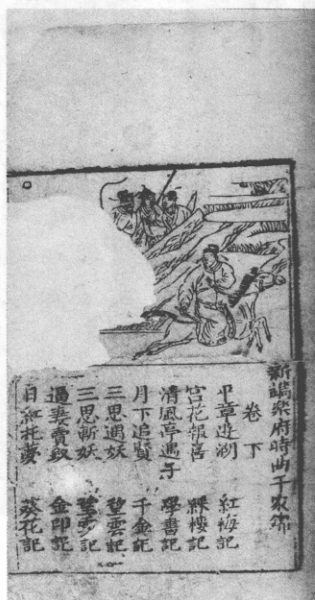 新鐫樂府時曲千家錦
卷下
平章遊湖 紅梅記
宮花報喜 綵樓記
清風亭遇子 學書記
月下追賢 千金記
三思遇妖 望雲記
三思斬妖 望雲記
逼妻賣釵 金印記
日紅托夢 葵花記